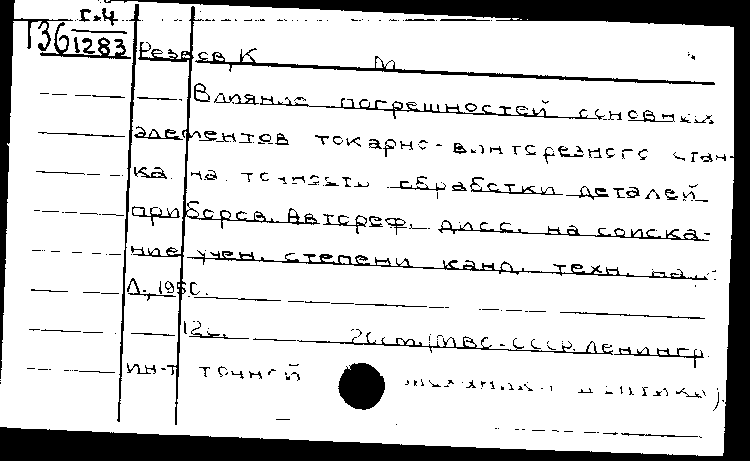 Г-4
Т36 1283
Резвов, К М
Влияние погрешностей основных
элементов токарно-винторезного стан-
ка на точность обработки деталей
приборов. Автореф. дисс. на соиска-
ние учен. степени канд. техн. наук
Л., 1950.
12с. 20см. (МВС-СССР. Ленингр.
ин-т точной механики и оптики).